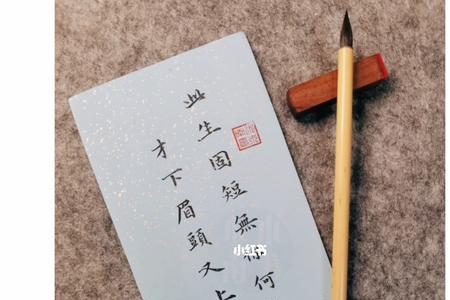 此生固短無你何
才下眉頭又上
小红书